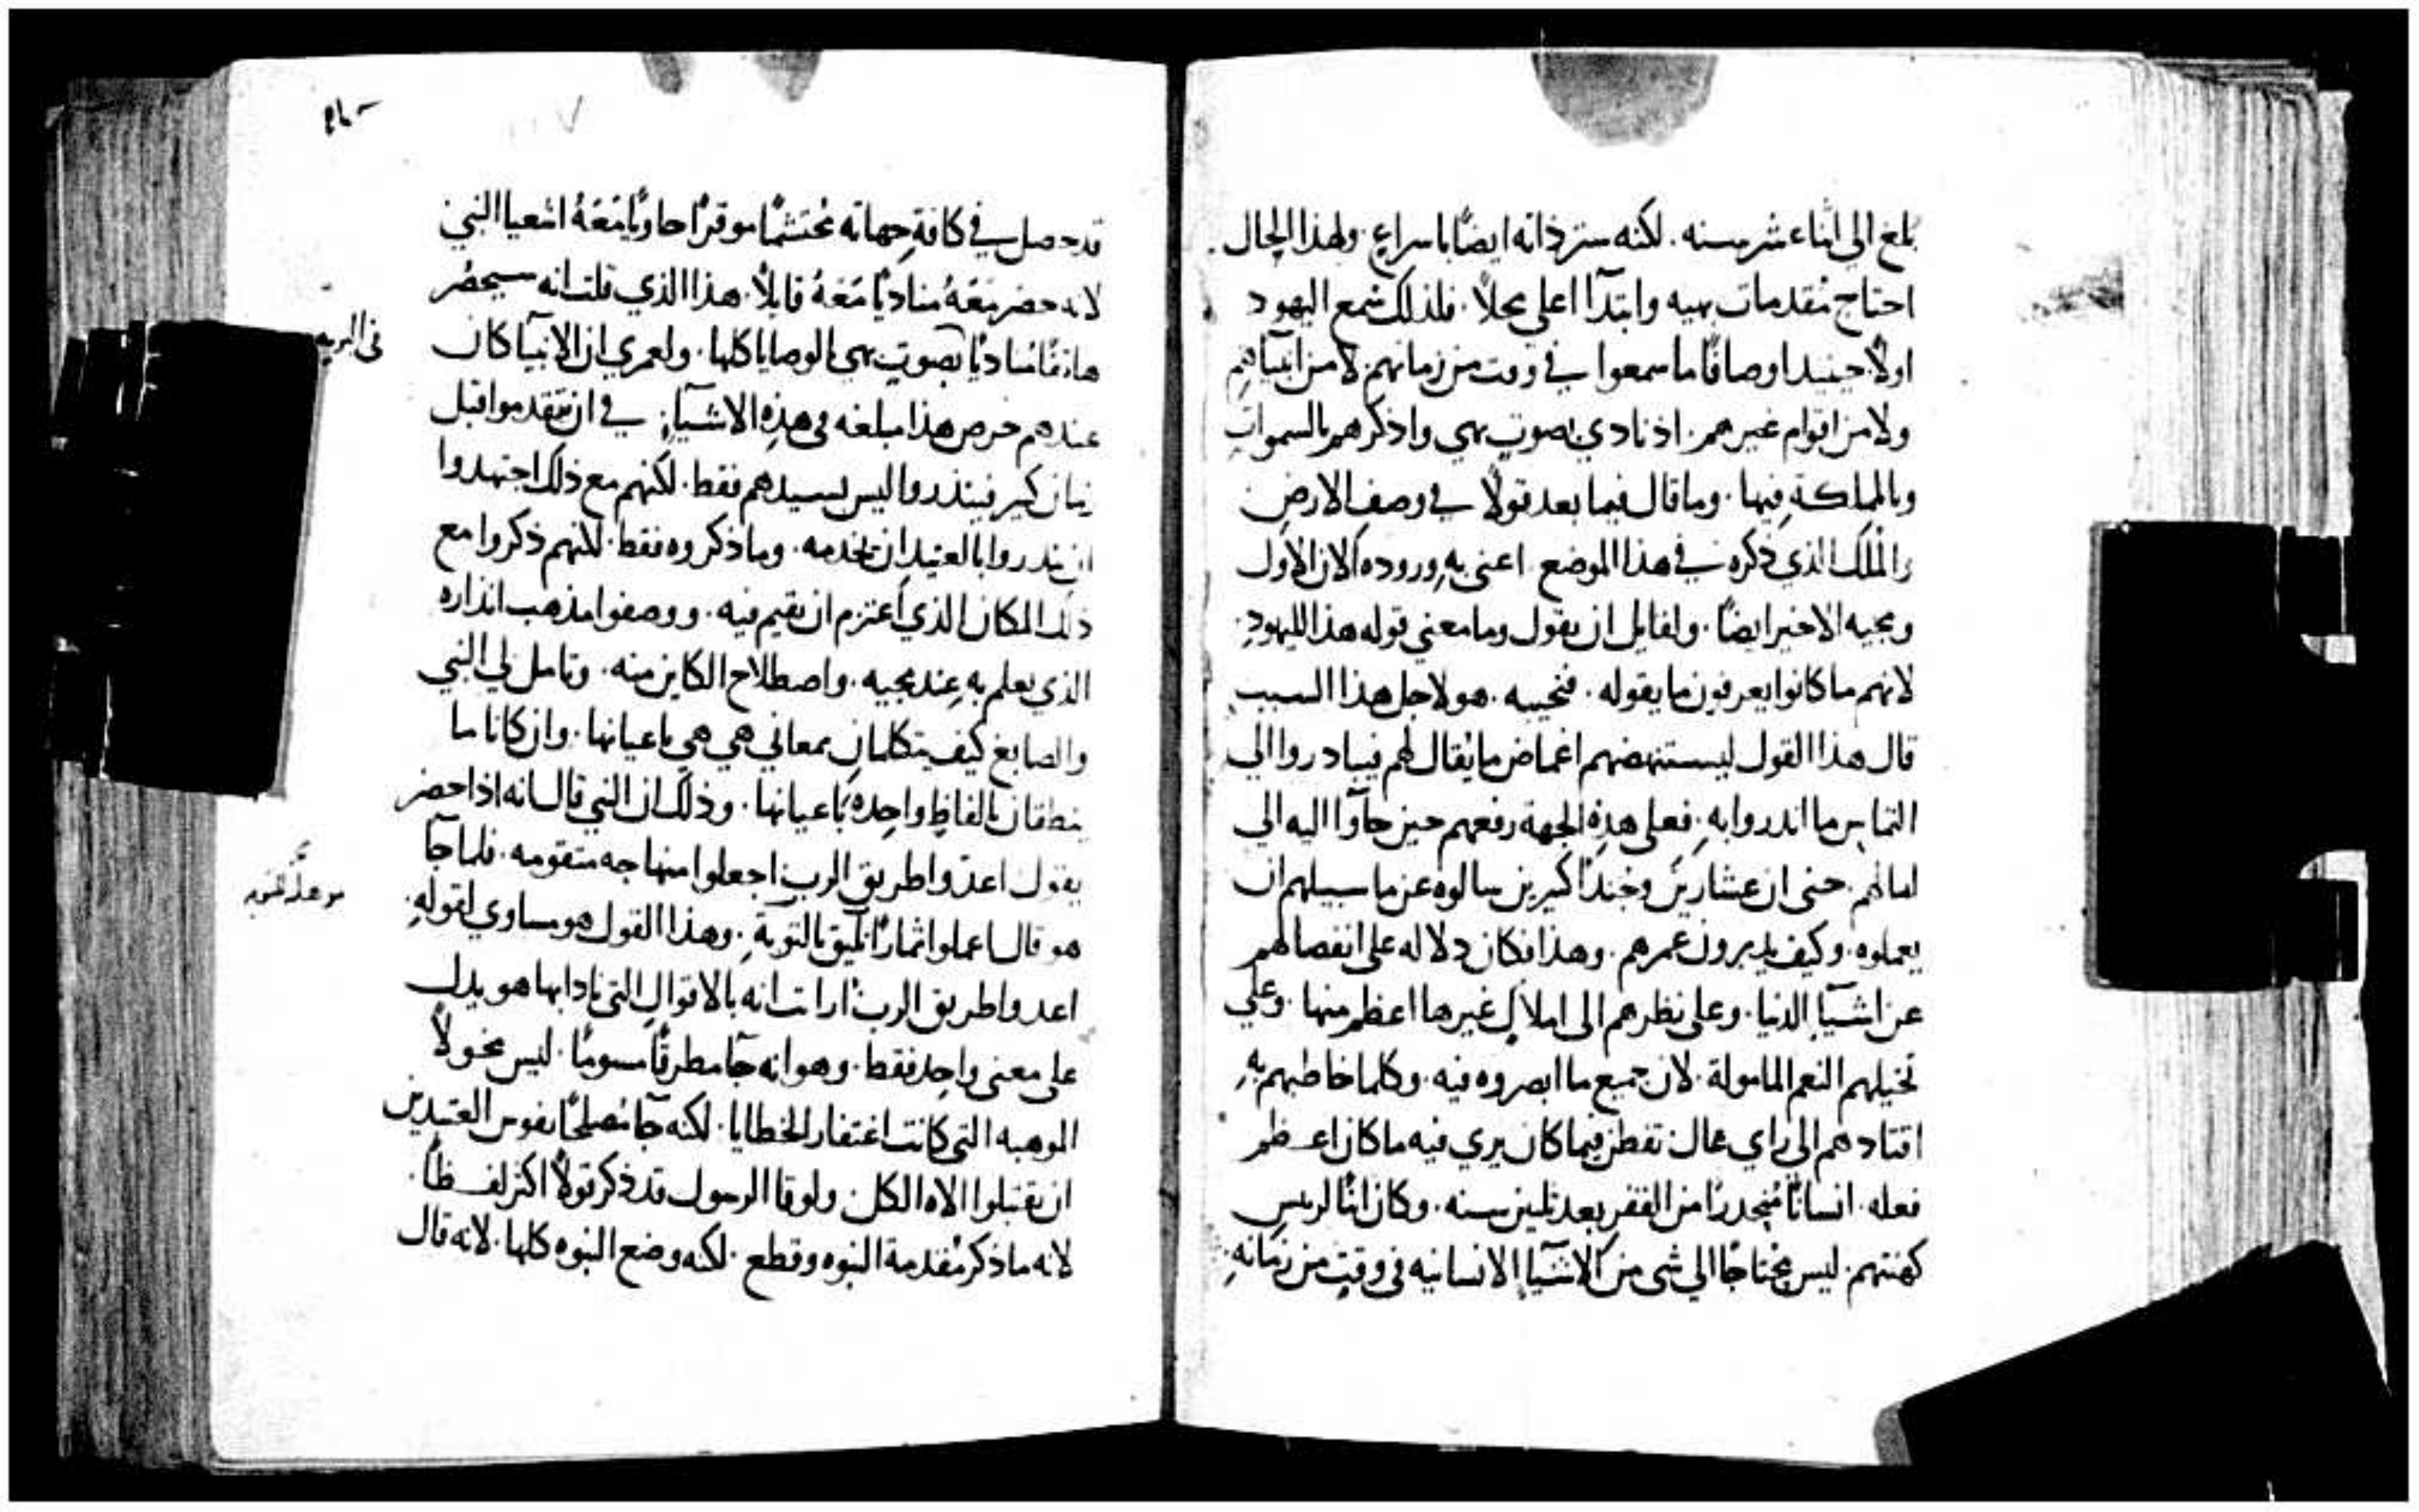 بلغ الى اثناء عشر سنه. لكنه ستر ذاته ايضًا باسراعٍ. ولهذا الحال
احتاج مُقدمات بهيه وابتدآ اعلي محلاً. فلذلك سمع اليهود
اولاً حينيذ اوصافًا ما سمعوا في وقت من زمانهم لا من انبياهم
ولا من اقوام غيرهم. اذ نادي بصوت بهي واذكرهم بالسموات
وبالمملكة فيها. وما قال فيما بعد قولاً في وصف الارض
والمُلك الذي ذكره في هذا الموضع اعني به وروده الان الاول
ومجيه الاخير ايضًا. ولقايل ان يقول وما معني قوله هذا لليهود.
لانهم ما كانوا يعرفون ما يقوله. فنجيبه. هو لاجل هذا السبب
قال هذا القول ليستنهضهم اغماض ما يُقال لهم فيبادروا الي
التماس ما انذروا به. فعلي هذهِ الجهة رفعهم حين جآوا اليه الي
امالهم. حتى ان عشارين وجندًا كيرين سالوه عن ما سبيلهم ان
يعملوه. وكيف يدبرون عمرهم. وهذا فكان دلاله على انفصالهم
عن اشيآ الدنيا. وعلى نظرهم الى املاك غيرها اعظم منها. وعلي
تخيلهم النعم المامولة. لان جميع ما ابصروه فيه. وكلما خاطبهم بهِ
اقتادهم الى راي عال تفطن فيما كان يري فيه ما كان اعظم
فعله. انسانًا مُنحدرًا من القفر بعد ثلثين سنه. وكان ابنًا لريس
كهنتهم. ليس محتاجًا الي شي من الاشيآ الانسانيه في وقتٍ من زمانهِ.
قد حصل في كافةِ جهاته مُحتشمًا موقرًا حاويًا مَعَهُ اشعيا النبي
لانه حضر مَعَهُ مناديًا مَعَهُ قايلاً. هذا الذي قلت انه سيحضُر
هاتفًا مُناديًا بصوتٍ بهي بالوصايا كلها. ولعمري ان الانبيآ كان
في البريه
عندهم حرص هذا مبلغه في هذهِ الاشيآءِ. في ان يتقدموا قبل
زمان كبير فينذروا ليس لسيدهم فقط. لكنهم مع ذلك اجتهدوا
ان ينذروا بالعتيد ان يخدمه. وما ذكروه فقط. لكنهم ذكروا مع
ذلك المكان الذي اعتزم ان يقيم فيه. ووصفوا مذهب انذاره
الذي يعلم به عند مجيه. واصطلاح الكاين منه. وتامل لي النبي
والصابغ كيف يتكلمان بمعاني هي هي باعيانها. وان كانا ما
ينطقان بالفاظٍ واحِدهٍ باعيانها. وذلك ان النبي قال انه اذا حضر
يقول اعدّوا طريق الرب اجعلوا مناهجه متقومه. فلما جآ
هو قال اعملوا ثمارًا تليق بالتوبةِ. وهذا القول هو مساوي لقولهِ.
اعدوا طريق الرب. ارايت انه بالاقوال التي نادا بها هو يدل
على معنى واحِد فقط. وهو انه جآ مطرقًا مسومًا. ليس مخولاً
الموهبه التي كانت اغتفار الخطايا. لكنه جآ مُصلحًا نفوس العتيدين
ان يقتبلوا الاه الكل. ولوقا الرسول قد ذكر قولاً اكثر لفظًا.
لانه ما ذكر مُقدمة النبوه وقطع. لكنه وضع النبوه كلها. لانه قال